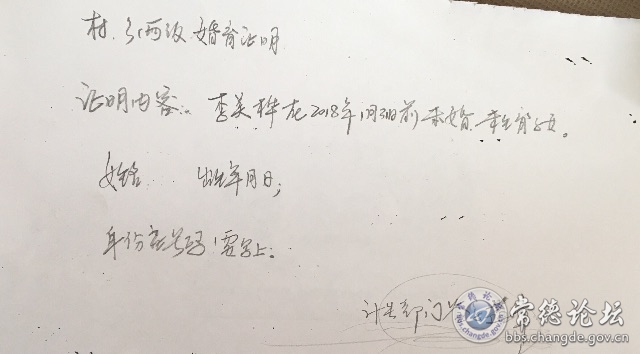 村、乡两级婚育证明
证明内容：李美桦在2018年1月3日前未婚、未生育子女。
姓名 出生年月日；
身份证号码需写上。
计生部门
常德论坛
bbs.changde.gov.cn